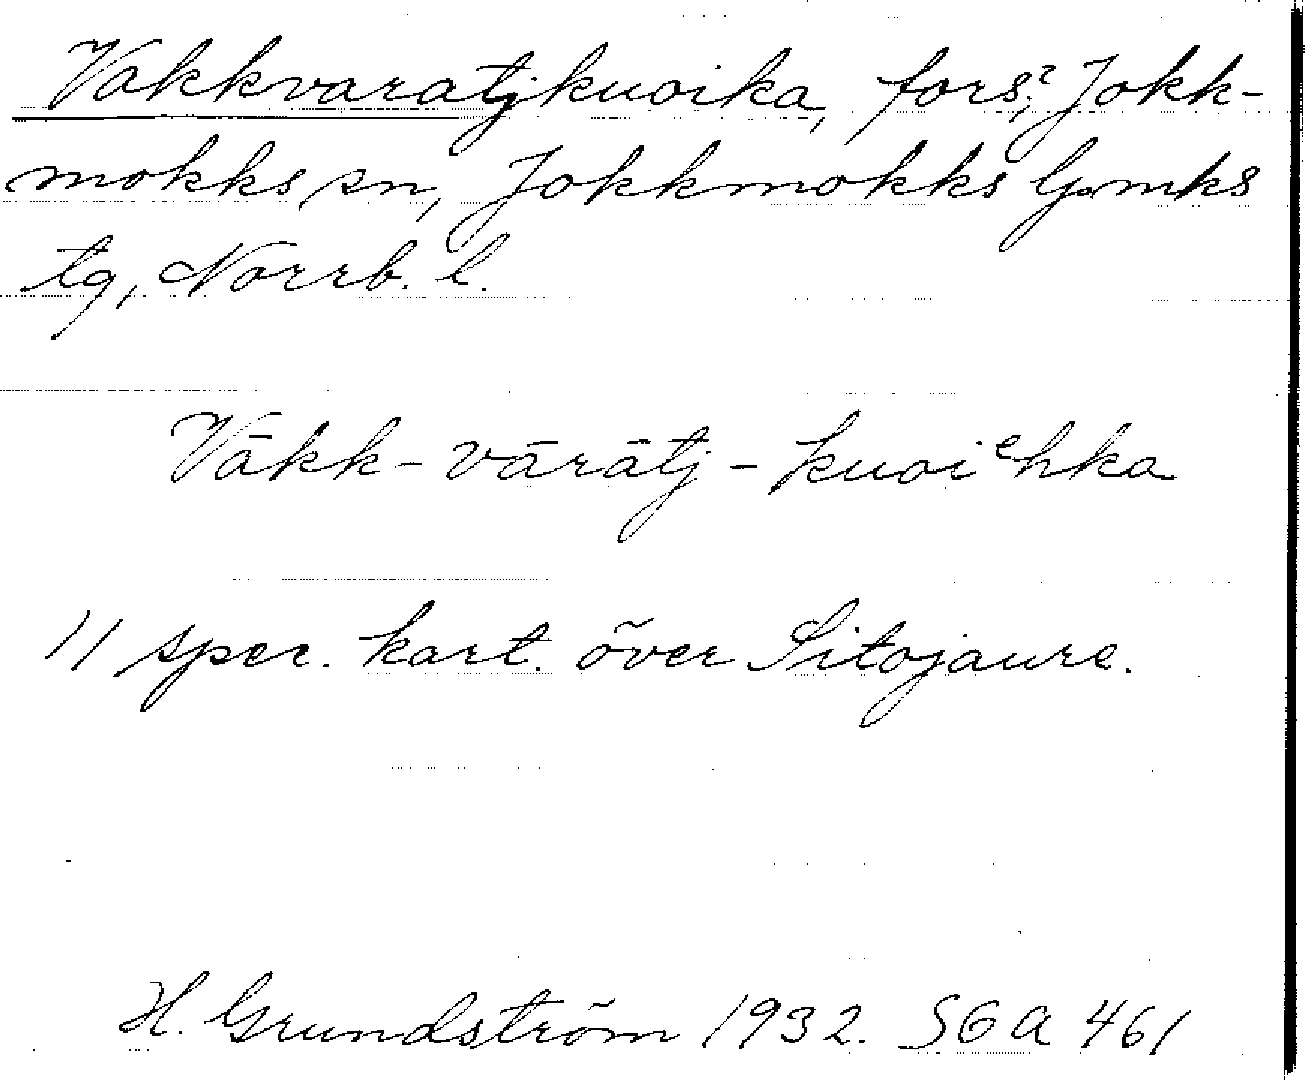 Vakkvaratjkuoika, fors?, Jokk-
mokks sn, Jokkmokks lpmks
tg, Norrb. l.
Vākk-vārātj-kuoiᵉhka
11 spec. kart. över Sitojaure.
H. Grundström 1932. SGA 461